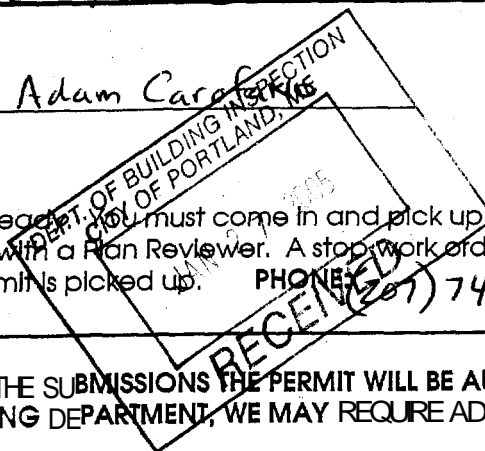 Adam
DEPT. OF BUILDING INSPECTION
CITY OF PORTLAND, ME
You must come in and pick up
with a Plan Reviewer. A stop work ord
mit is picked up. PHONE: (207) 74
RECEIVED
THE SUBMISSIONS THE PERMIT WILL BE AU
NG DEPARTMENT, WE MAY REQUIRE AD